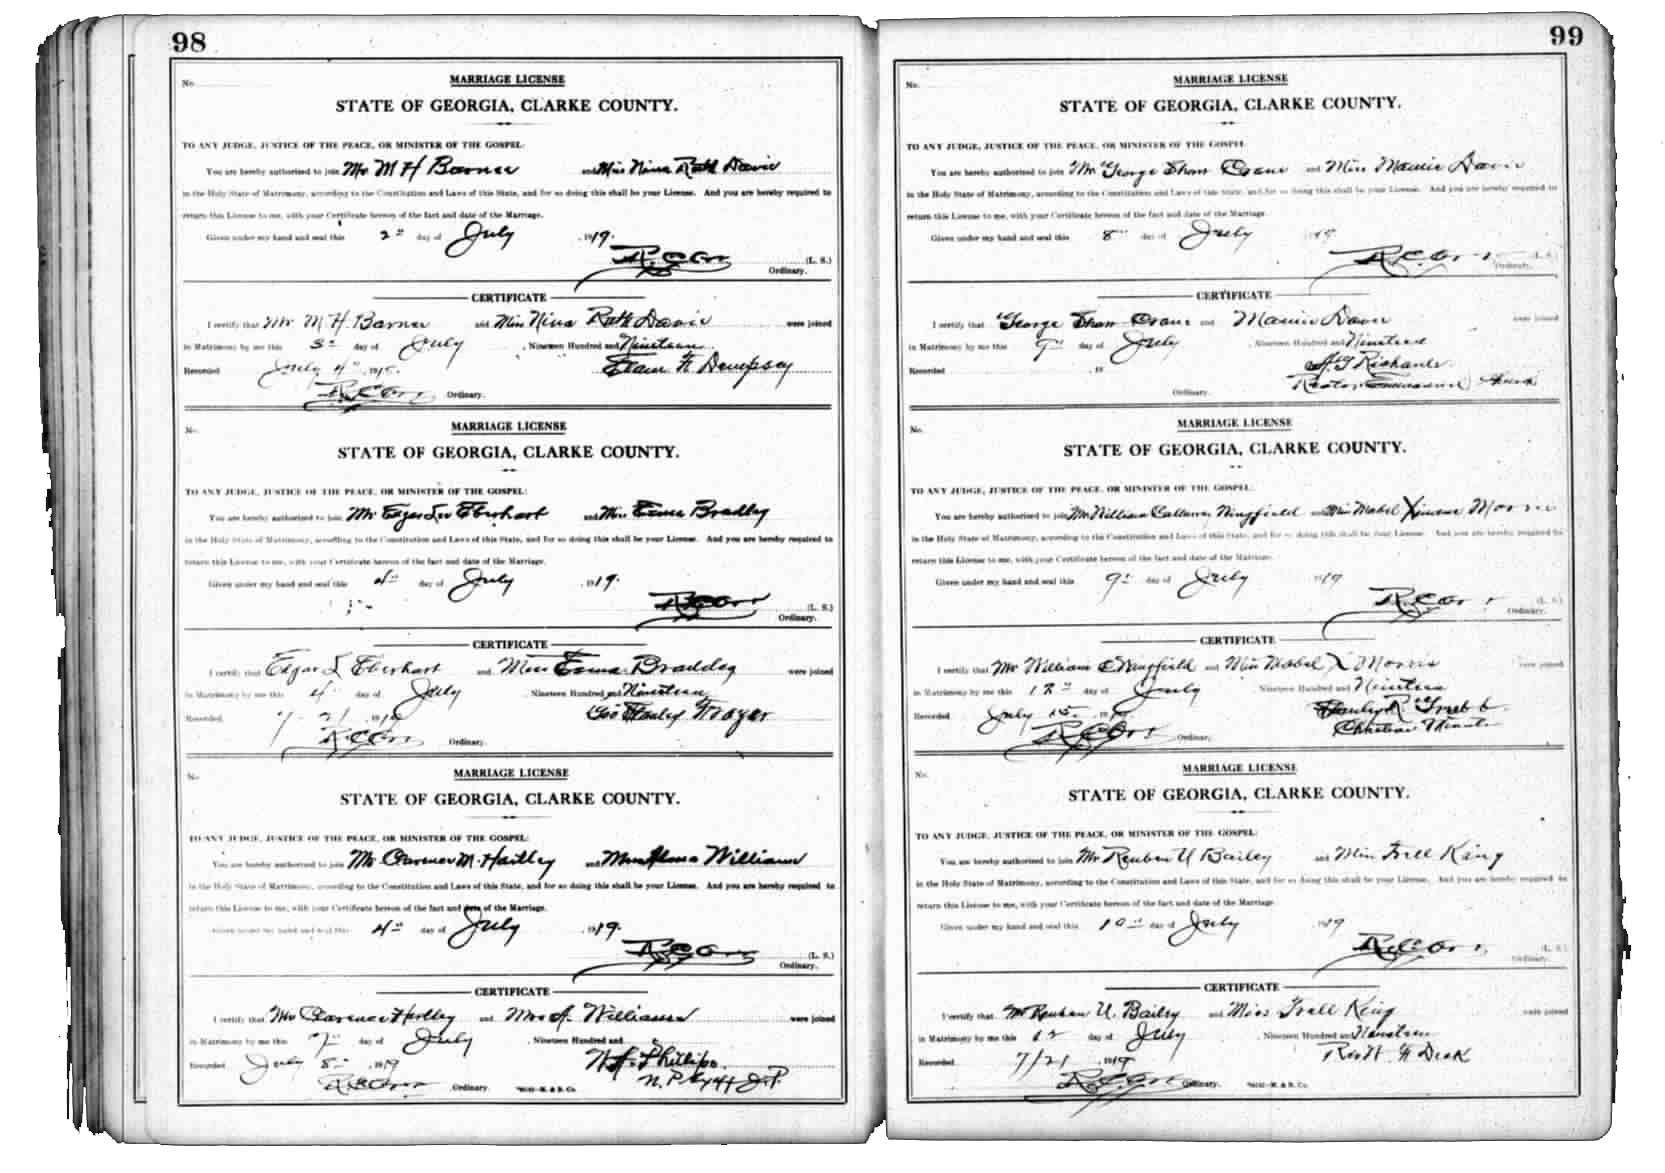 98
No.
MARRIAGE LICENSE
STATE OF GEORGIA, CLARKE COUNTY.
TO ANY JUDGE, JUSTICE OF THE PEACE, OR MINISTER OF THE GOSPEL:
You are hereby authorized to join Mr M H Barner and Miss Nina Ruth Davis
in the Holy State of Matrimony, according to the Constitution and Laws of this State, and for so doing this shall be your License. And you are hereby required to
return this License to me, with your Certificate hereon of the fact and date of the Marriage.
Given under my hand and seal this 2nd day of July 1919.
R.C. Orr (L. S.)
Ordinary.
CERTIFICATE
I certify that Mr M. H. Barner and Miss Nina Ruth Davis were joined
in Matrimony by me this 3d day of July, Nineteen Hundred and Nineteen
Recorded July 4th 191 H Dempsey
R.C. Orr Ordinary.
No.
MARRIAGE LICENSE
STATE OF GEORGIA, CLARKE COUNTY.
TO ANY JUDGE, JUSTICE OF THE PEACE, OR MINISTER OF THE GOSPEL:
You are hereby authorized to join Mr Edgar Lee Eberhart and Bradley
in the Holy State of Matrimony, according to the Constitution and Laws of this State, and for so doing this shall be your License. And you are hereby required to
return this License to me, with your Certificate hereon of the fact and date of the Marriage.
Given under my hand and seal this 4th day of July 1919.
R.C. Orr (L. S.)
Ordinary.
CERTIFICATE
I certify that Edgar L Eberhart and Miss were joined
in Matrimony by me this 4th day of July, Nineteen Hundred and Nineteen
Recorded 7-21 1919 Geo Stanley Frazer
R.C. Orr Ordinary.
No.
MARRIAGE LICENSE
STATE OF GEORGIA, CLARKE COUNTY.
TO ANY JUDGE, JUSTICE OF THE PEACE, OR MINISTER OF THE GOSPEL:
You are hereby authorized to join Mr Clarence M. Hartley and Alma William
in the Holy State of Matrimony, according to the Constitution and Laws of this State, and for so doing this shall be your License. And you are hereby required to
return this License to me, with your Certificate hereon of the fact and date of the Marriage.
Given under my hand and seal this 4th day of July 1919.
R.C. Orr (L. S.)
Ordinary.
CERTIFICATE
I certify that Mr Clarence Hartley and Mrs A. Williams were joined
in Matrimony by me this 7th day of July, Nineteen Hundred and
Recorded July 8th 1919 Phillips
R.C. Orr Ordinary. N.P. J.P.
99
No.
MARRIAGE LICENSE
STATE OF GEORGIA, CLARKE COUNTY.
TO ANY JUDGE, JUSTICE OF THE PEACE, OR MINISTER OF THE GOSPEL:
You are hereby authorized to join Mr George Shaw Crane and Miss Mamie Davis
in the Holy State of Matrimony, according to the Constitution and Laws of this State, and for so doing this shall be your License. And you are hereby required to
return this License to me, with your Certificate hereon of the fact and date of the Marriage.
Given under my hand and seal this 8th day of July 1919
R.C. Orr (L. S.)
Ordinary.
CERTIFICATE
I certify that George Shaw Crane and Mamie Davis were joined
in Matrimony by me this 9th day of July, Nineteen Hundred and Nineteen
Recorded 19 Richards
Ordinary. Rector Emmanuel Church
No.
MARRIAGE LICENSE
STATE OF GEORGIA, CLARKE COUNTY.
TO ANY JUDGE, JUSTICE OF THE PEACE, OR MINISTER OF THE GOSPEL:
You are hereby authorized to join Mr William Callaway Wingfield and Miss Mabel Morris
in the Holy State of Matrimony, according to the Constitution and Laws of this State, and for so doing this shall be your License. And you are hereby required to
return this License to me, with your Certificate hereon of the fact and date of the Marriage.
Given under my hand and seal this 9th day of July 1919
R.C. Orr (L. S.)
Ordinary.
CERTIFICATE
I certify that Mr William C Wingfield and Miss Mabel X Morris were joined
in Matrimony by me this 12th day of July Nineteen Hundred and Nineteen
Recorded July 15 191 Stanley R Grubb
R.C. Orr Ordinary. Christian Minister
No.
MARRIAGE LICENSE
STATE OF GEORGIA, CLARKE COUNTY.
TO ANY JUDGE, JUSTICE OF THE PEACE, OR MINISTER OF THE GOSPEL:
You are hereby authorized to join Mr Reuben U Bailey and Miss King
in the Holy State of Matrimony, according to the Constitution and Laws of this State, and for so doing this shall be your License. And you are hereby required to
return this License to me, with your Certificate hereon of the fact and date of the Marriage.
Given under my hand and seal this 10th day of July 1919
R.C. Orr (L. S.)
Ordinary.
CERTIFICATE
I certify that Mr Reuben U. Bailey and Miss King were joined
in Matrimony by me this 12 day of July, Nineteen Hundred and Nineteen
Recorded 7/21 1919 Rev W
R.C. Orr Ordinary.